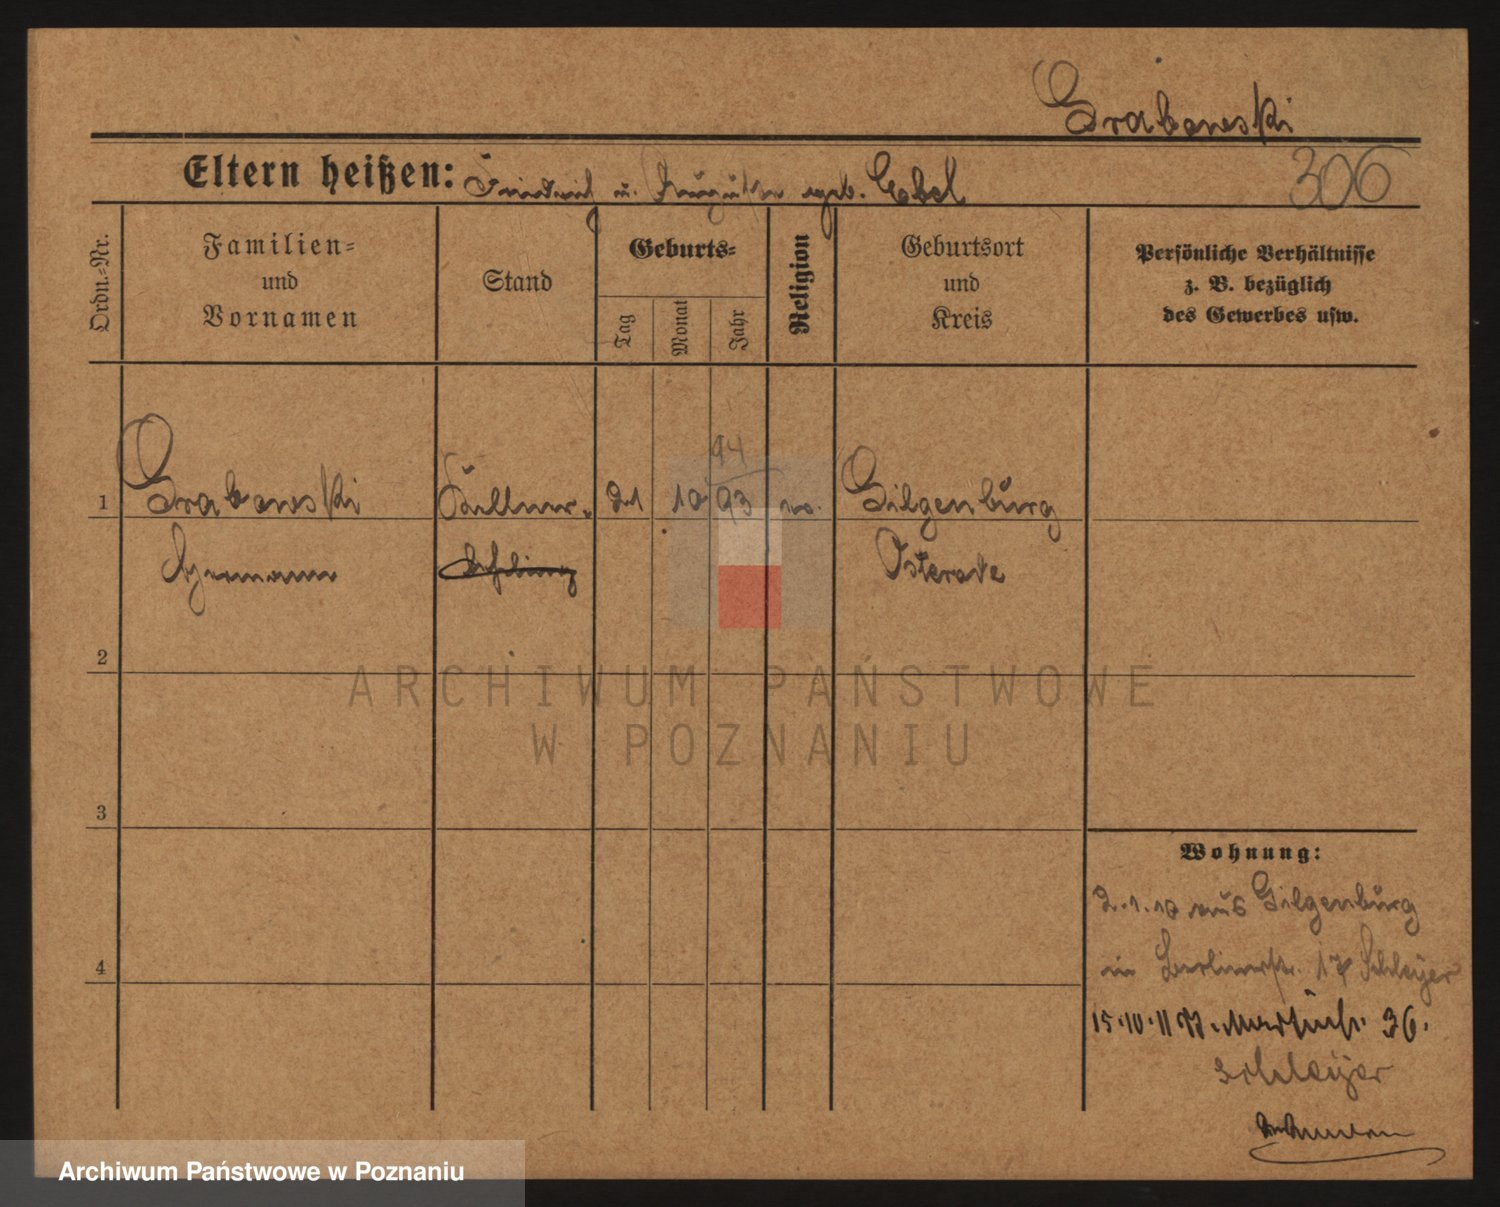 Grabowski
Eltern heißen: Friedrich u. Auguste geb. Ebel
306
Ordn.-Nr.
Familien-
und
Vornamen
Stand
Geburts-
Tag
Monat
Jahr
Religion
Geburtsort
und
Kreis
Persönliche Verhältnisse
z. B. bezüglich
des Gewerbes usw.
94
1 Grabowski Kellner- 21 10 93 ev. Gilgenburg
Hermann Osterode
2
3
4
Wohnung:
2.1.10 aus Gilgenburg
in Berlinerstr. 17 Schleyer
15.10.11 Martinstr. 36.
Schleyer
ARCHIWUM PAŃSTWOWE
W POZNANIU
Archiwum Państwowe w Poznaniu